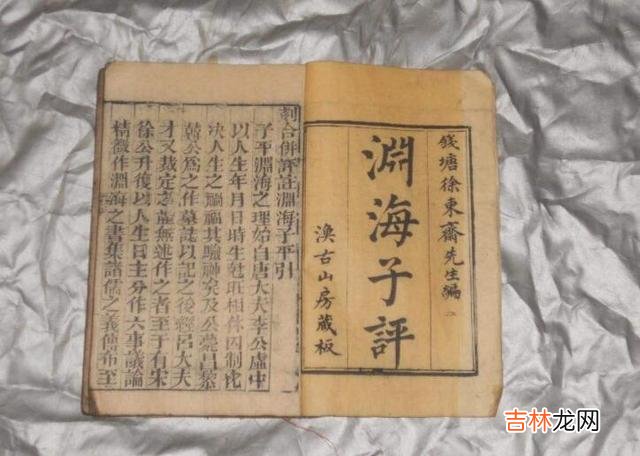 錢塘徐東齋先生編
淵海子評
漁古山房藏板
刻合併評註淵海子平引
子平淵海之理始自唐大夫李公虛中
以人生年月日時生尅旺相休囚制化
決人生之禍福其驗神矣及公薨昌黎
韓公爲之作墓誌以記之後經呂大夫
才又裁定之並無述作之者至于有宋
徐公升復以人生日主分作六事議論
精微作淵海之書集諸儒之義傳布至
吉林龙网